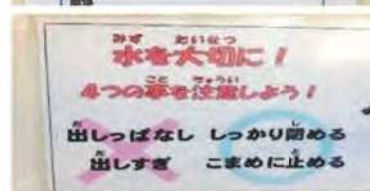 水を大切に！
4つの事を注意しよう！
出しっぱなし しっかり閉める
出しすぎ こまめに止める